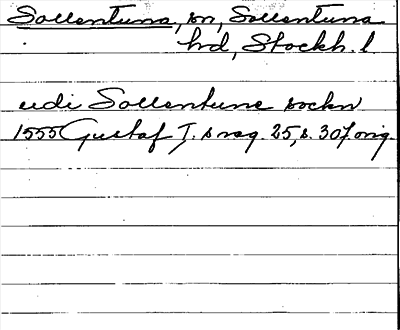 Sollentuna, sn, Sollentuna
hd, Stockh. l
udi Sollentune sockn
1555 Gustaf I.s reg. 25, s. 307. orig.